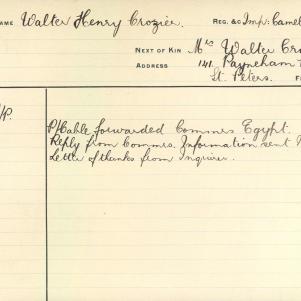 NAME Walter Henry Crozier. REG. &c Imp: Camel
NEXT OF KIN Mrs Walter Cro
ADDRESS 141, Payneham
St. Peters.
P/Cable forwarded Commrs Egypt.
Reply from Commrs. Information sent
Letter of thanks from Inquirer.